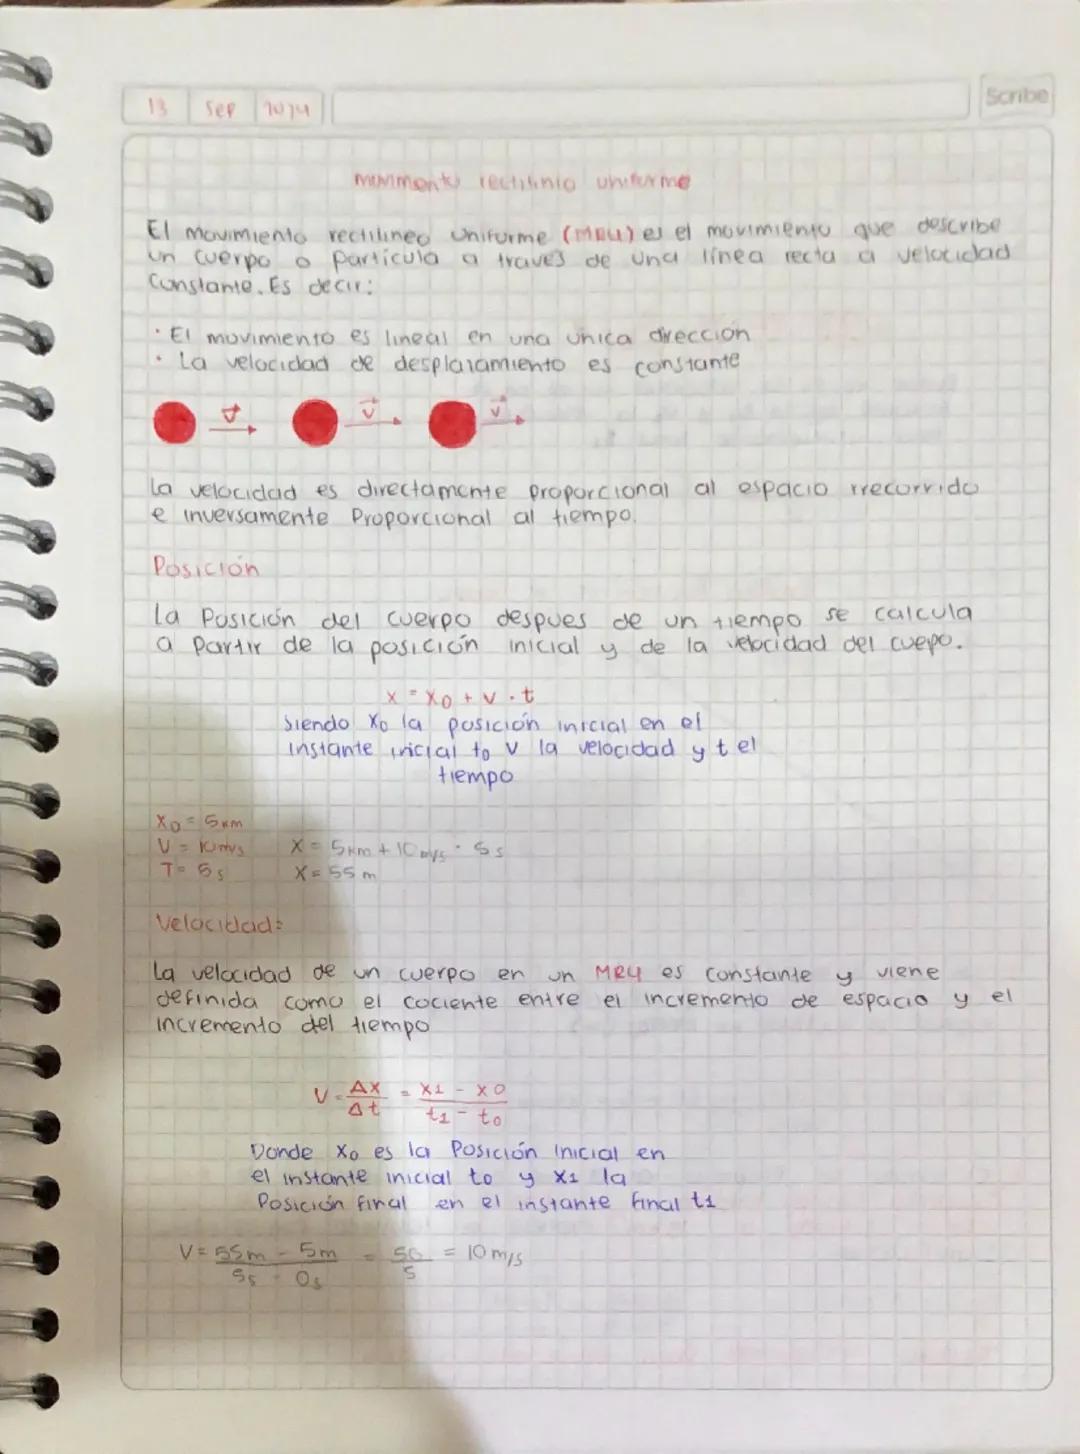 13 Sep 2024
Scribe
movimento rectilinio uniforme
El movimiento rectilineo uniforme (MRU) es el movimiento que describe
un cuerpo o particula a traves de una línea recta a velocidad
constante. Es decir:
· El movimiento es lineal en una unica dirección
· La velocidad de desplazamiento es constante
v v v
La velocidad es directamente proporcional al espacio rrecorrido
e inversamente Proporcional al tiempo.
Posición
La Posición del cuerpo despues de un tiempo se calcula
a Partir de la posición inicial y de la velocidad del cuepo.
x = x0 + v · t
Siendo x0 la posición inicial en el
instante inicial t0 v la velocidad y t el
tiempo
X0 = 5km
V = 10m/s X = 5km + 10m/s · 5s
T = 5s X = 55 m
Velocidad:
La velocidad de un cuerpo en un MRU es constante y viene
definida como el cociente entre el incremento de espacio y el
incremento del tiempo
V = Δx/Δt = x1 - x0/t1 - t0
Donde x0 es la Posición inicial en
el instante inicial t0 y x1 la
Posición final en el instante final t1
V = 55m - 5m/5s - 0s = 50/5 = 10 m/s